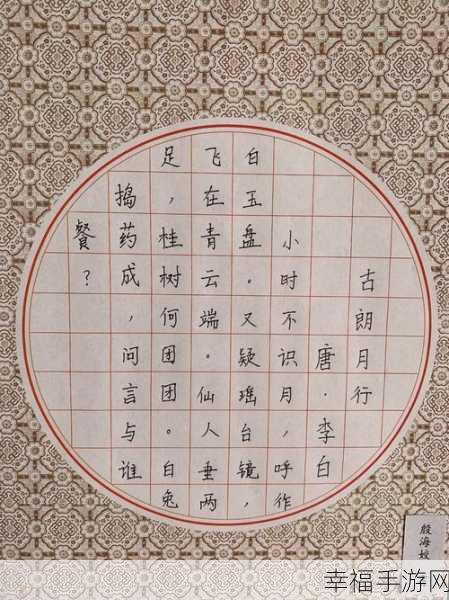 古朗月行
唐·李白
小时不识月，呼作
白玉盘。又疑瑶台镜，
飞在青云端。仙人垂两
足，桂树何团团。白兔
捣药成，问言与谁
餐？
殷海姣
幸福手游网